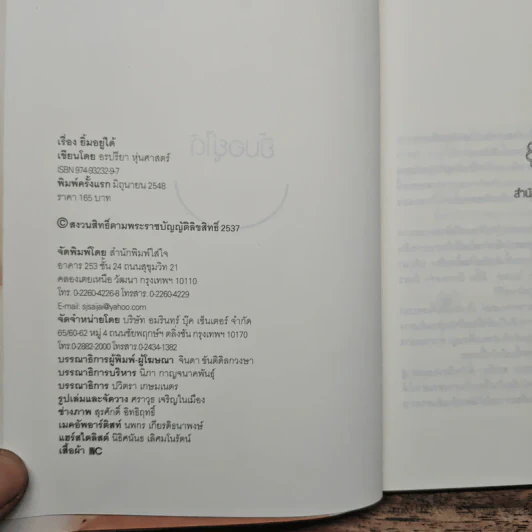 เรื่อง ยิ้มอยู่ได้
เขียนโดย อรปรียา หุ่นศาสตร์
ISBN 974-93232-9-7
พิมพ์ครั้งแรก มิถุนายน 2548
ราคา 165 บาท
© สงวนสิทธิ์ตามพระราชบัญญัติลิขสิทธิ์ 2537
จัดพิมพ์โดย สำนักพิมพ์ใส่ใจ
อาคาร 253 ชั้น 24 ถนนสุขุมวิท 21
คลองเตยเหนือ วัฒนา กรุงเทพฯ 10110
โทร. 0-2260-4226-8 โทรสาร. 0-2260-4229
E-mail: sjsaijai@yahoo.com
จัดจำหน่ายโดย บริษัท อมรินทร์ บุ๊ค เซ็นเตอร์ จำกัด
65/60-62 หมู่ 4 ถนนชัยพฤกษ์ฯ ตลิ่งชัน กรุงเทพฯ 10170
โทร.0-2882-2000 โทรสาร.0-2434-1382
บรรณาธิการผู้พิมพ์-ผู้โฆษณา จินดา ขันติศิลกวงษา
บรรณาธิการบริหาร นิภา กาญจนาคพันธุ์
บรรณาธิการ ปวิตรา เกษมเนตร
รูปเล่มและจัดวาง ศราวุธ เจริญในเมือง
ช่างภาพ สุรศักดิ์ อิทธิฤทธิ์
เมคอัพอาร์ติสท์ นพกร เกียรติธนาพงษ์
แฮร์สไตลิสต์ นิธิศนันธ เลิศมโนรัตน์
เสื้อผ้า
สำนั